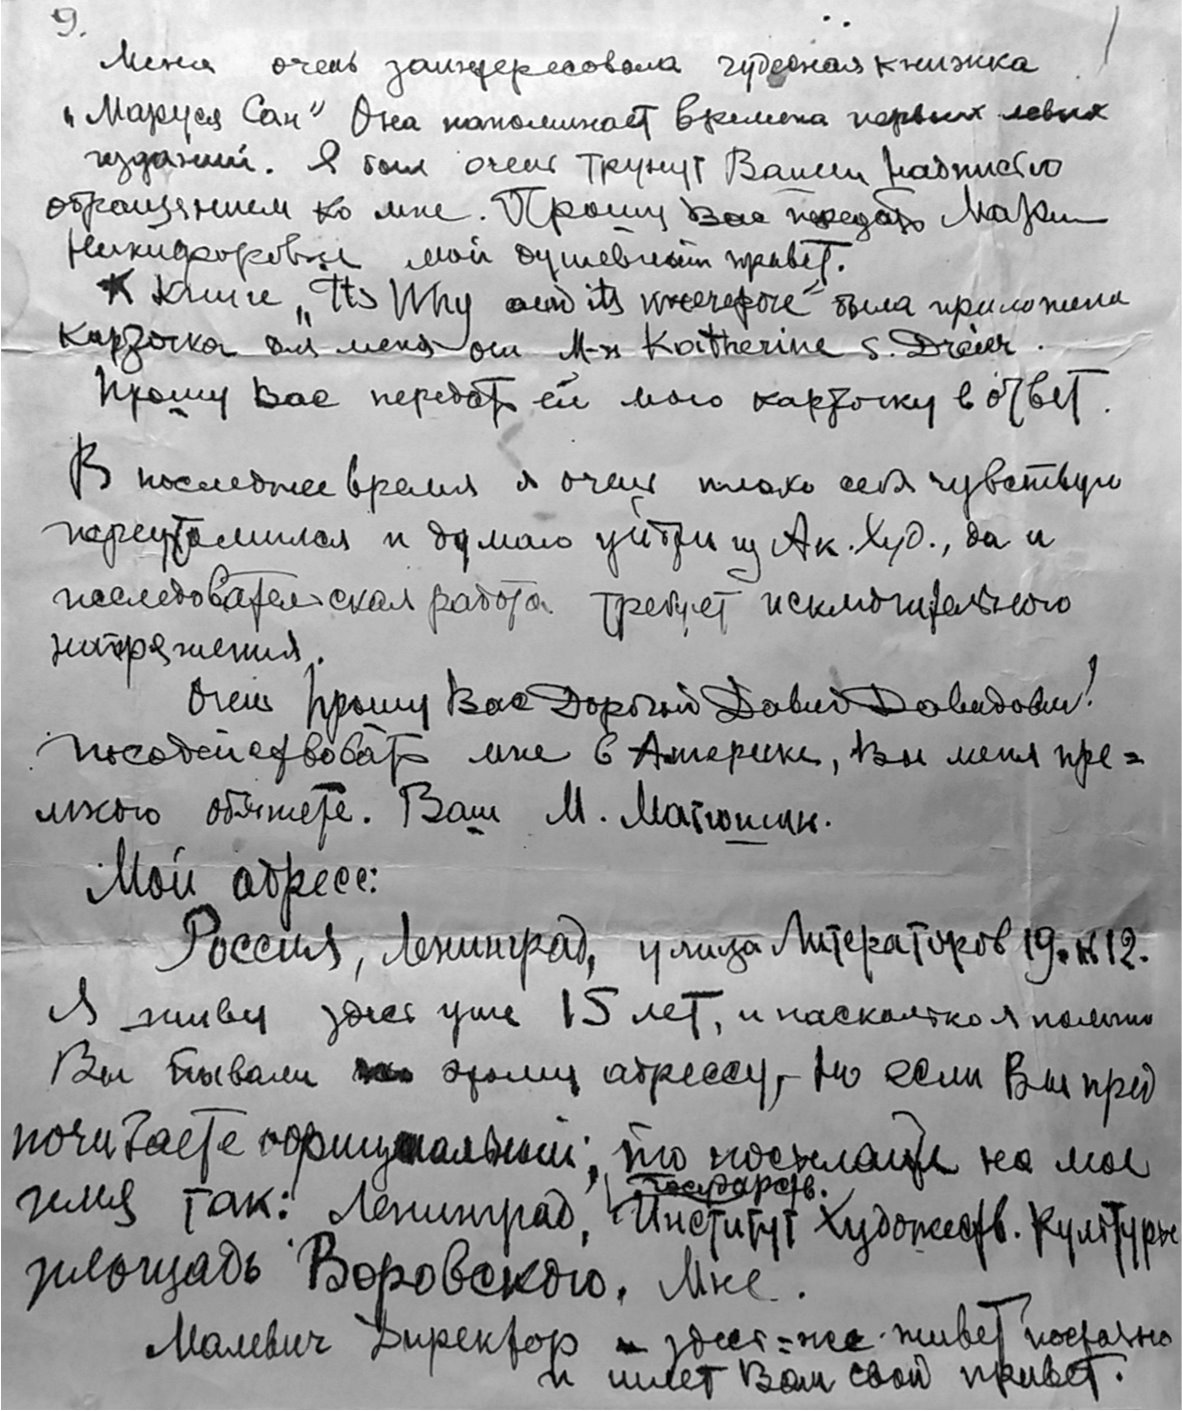 9.
Меня очень заинтересовала чудесная книжка
„Маруся Сан" Она напоминает времена первых левых
изданий. Я был очень тронут Вашим надписью
обращением ко мне. Прошу Вас передать Марии
Никифоровне мой душевный привет.
К книге „Its Why and its wherefore" была приложена
карточка для меня от М-н Katherine S. Dreier.
Прошу Вас передать ей мою карточку в ответ.
В последнее время я очень плохо себя чувствую
переутомился и думаю уйти из Ак. Худ., да и
исследовательская работа требует исключительного
напряжения.
Очень прошу Вас Дорогой Давид Давидович!
посодействовать мне в Америке, Вы меня пре=
много обяжете. Ваш М. Матюшин.
Мой адрес:
Россия, Ленинград, улица Литераторов 19. к 12.
Я живу здесь уже 15 лет, и насколько я помню
Вы бывали по этому адрессу, но если Вы пред
почитаете официальный, то посылайте на мое
имя так: Ленинград, Государств. Институт Художеств. Культуры
площадь Воровского. Мне.
Малевич Директор - здесь=же живет постоянно
и шлет Вам свой привет.